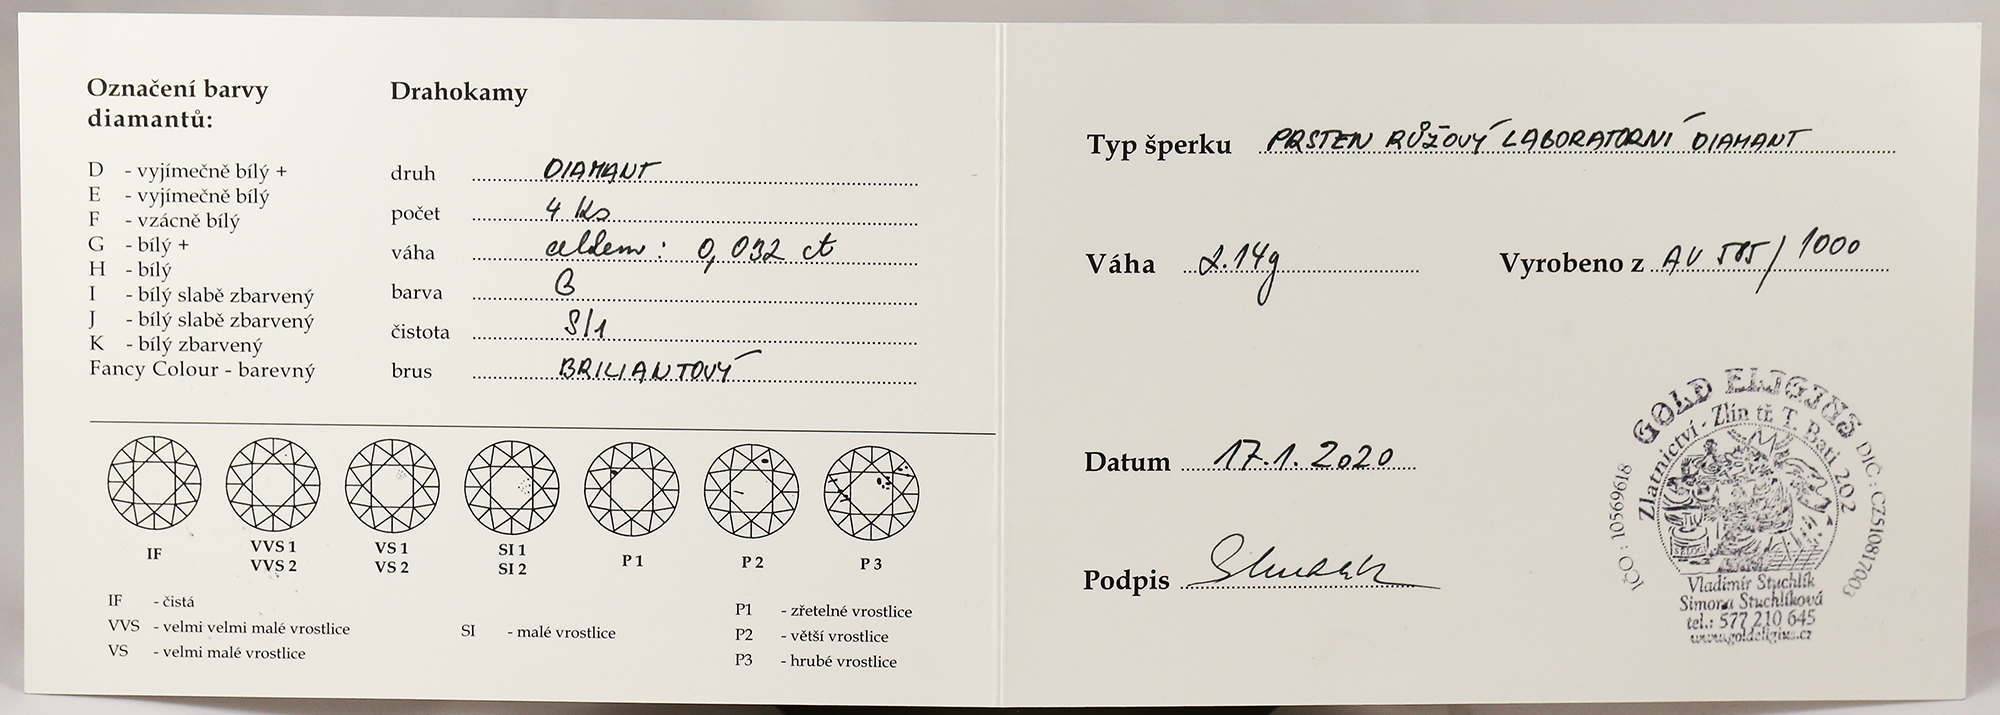 Označení barvy
diamantů:
D - vyjímečně bílý +
E - vyjímečně bílý
F - vzácně bílý
G - bílý +
H - bílý
I - bílý slabě zbarvený
J - bílý slabě zbarvený
K - bílý zbarvený
Fancy Colour - barevný
Drahokamy
druh DIAMANT
počet 4 ks
váha celkem: 0,032 ct
barva B
čistota SI1
brus BRILIANTOVÝ
IF
VVS 1
VVS 2
VS 1
VS 2
SI 1
SI 2
P 1
P 2
P 3
IF - čistá
VVS - velmi velmi malé vrostlice
VS - velmi malé vrostlice
SI - malé vrostlice
P1 - zřetelné vrostlice
P2 - větší vrostlice
P3 - hrubé vrostlice
Typ šperku PRSTEN RŮŽOVÝ LABORATORNÍ DIAMANT
Váha 2.14g
Vyrobeno z AU 585/1000
Datum 17.1.2020
Podpis
GOLD ELIGIUS
Zlatnictví - Zlín tř. T. Bati 202
IČO: 10569618
DIČ: CZ510817003
Vladimír Stuchlík
Simona Stuchlíková
tel.: 577 210 645
www.goldeligius.cz